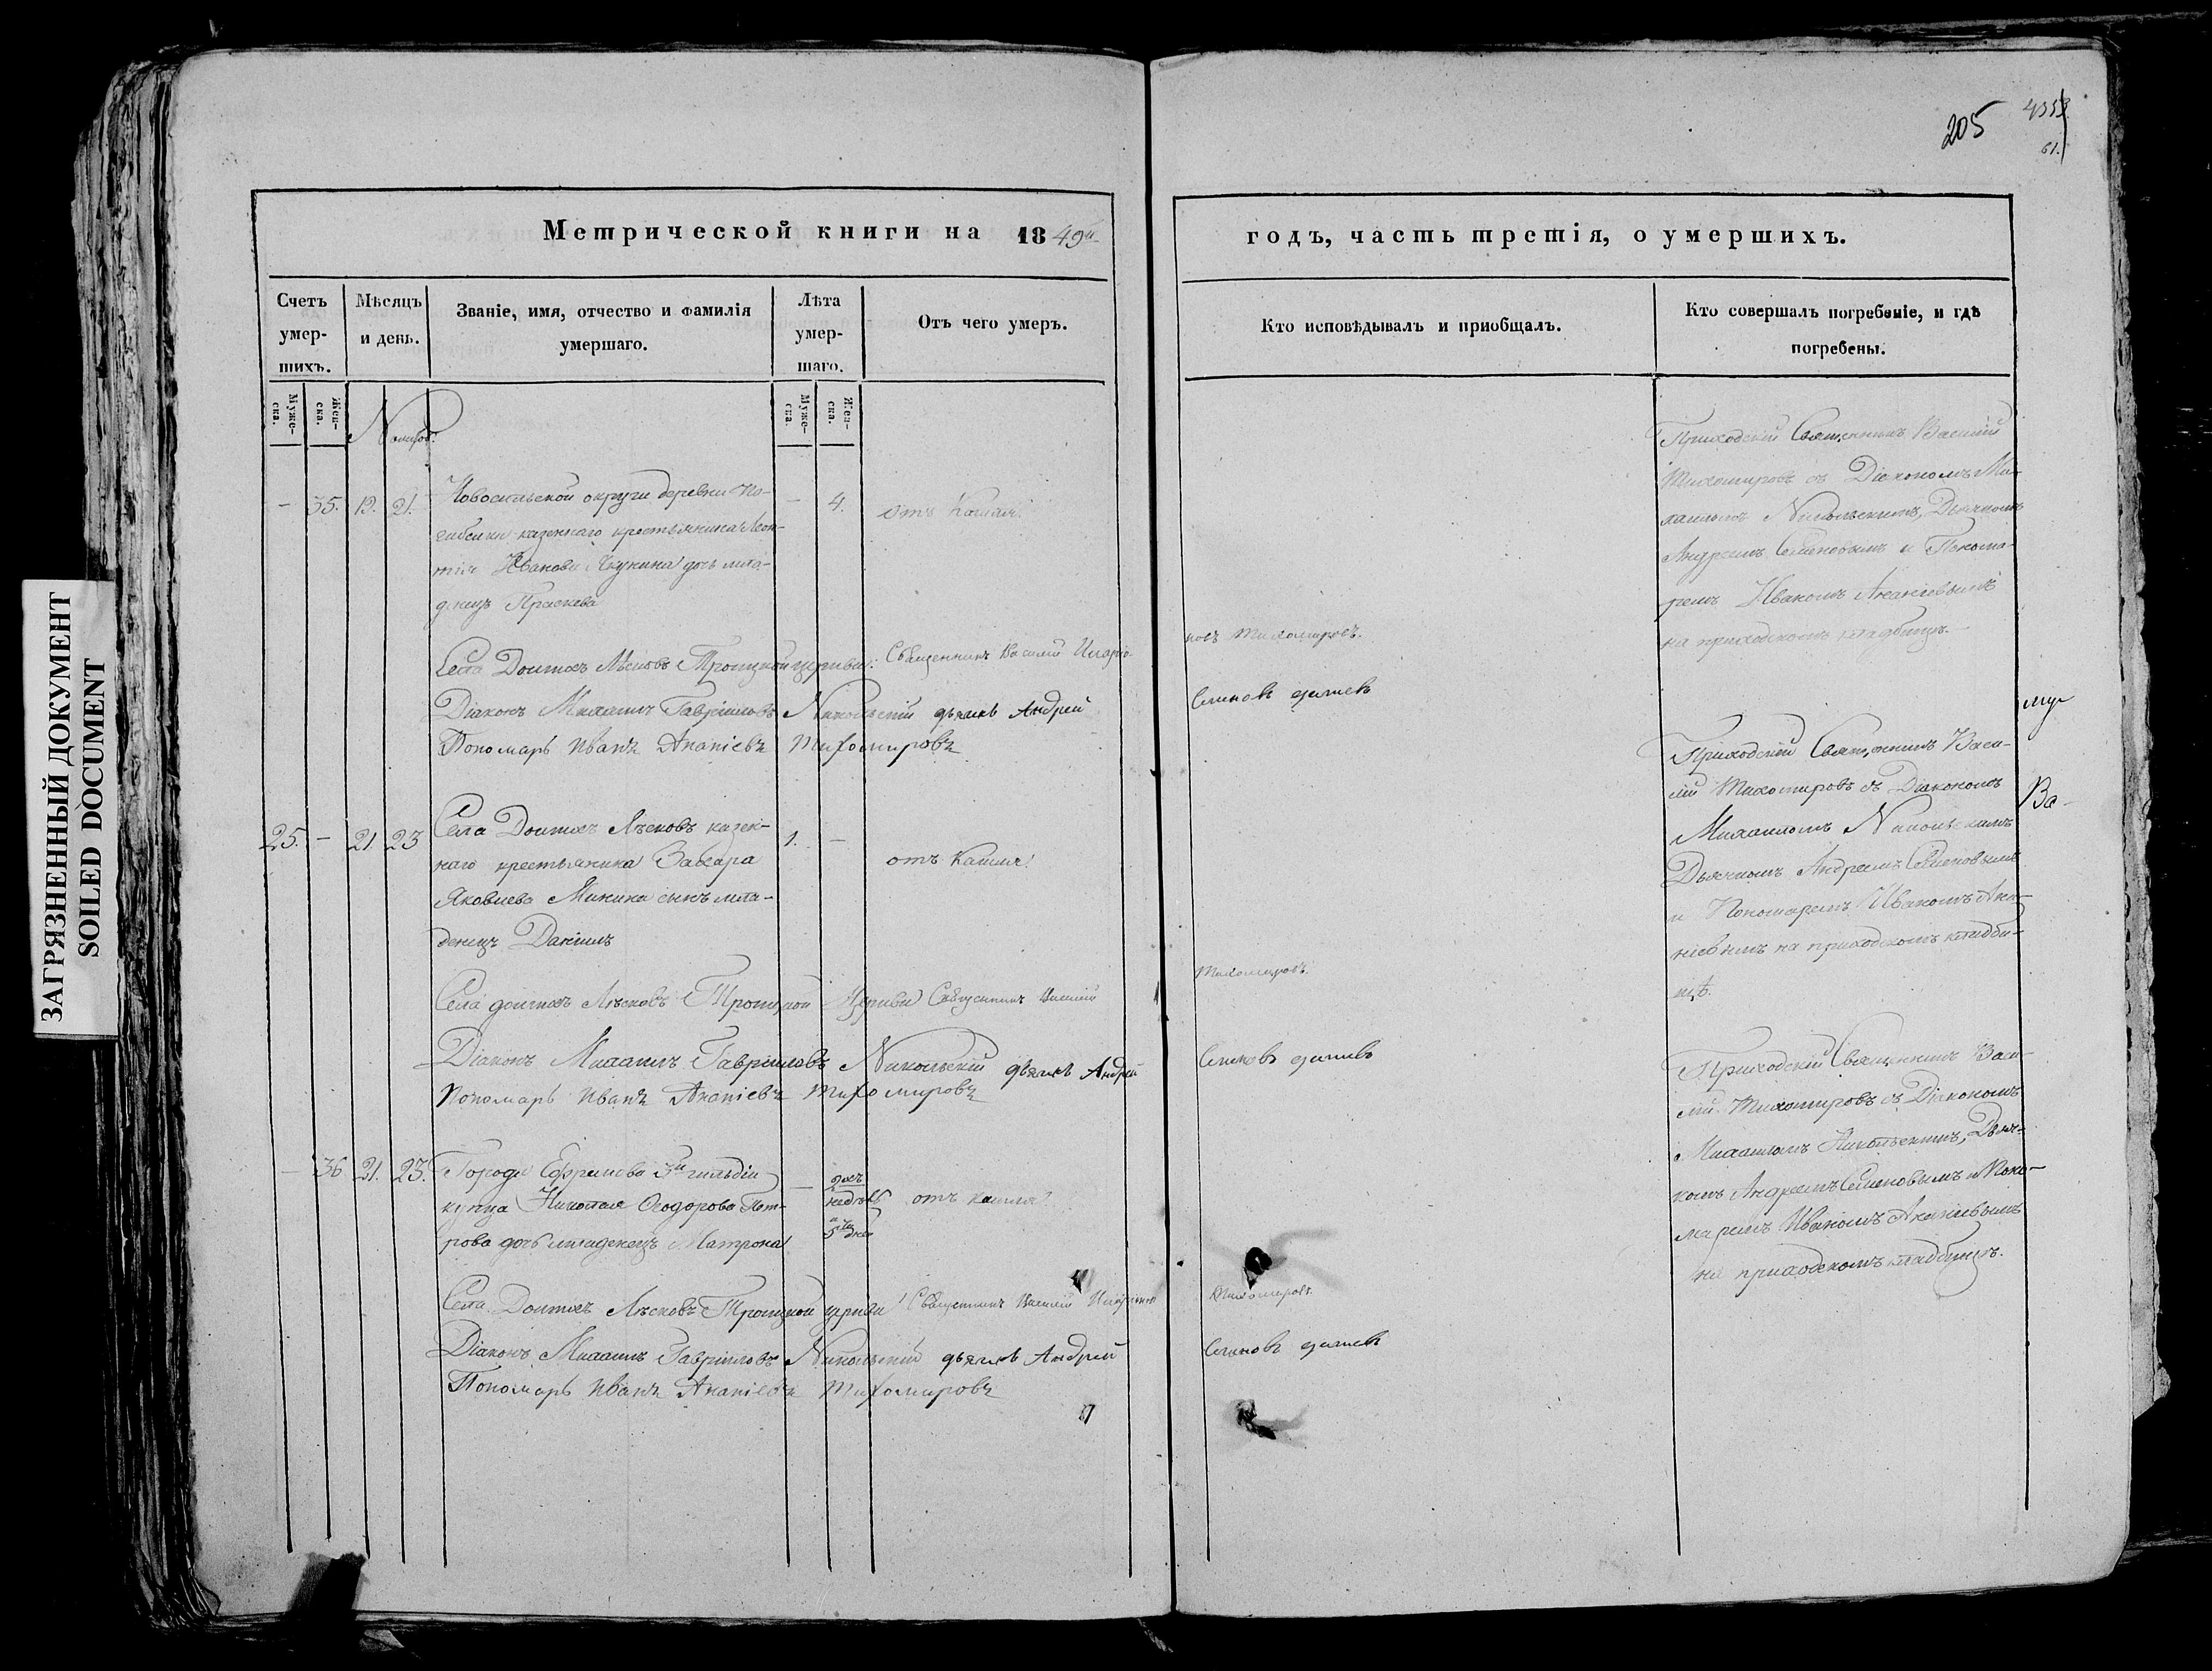 205
61.
ЗАГРЯЗНЕННЫЙ ДОКУМЕНТ
SOILED DOCUMENT
Метрической книги на 1849й
годъ, часть третія, о умершихъ.
Счетъ умер-шихъ.
Мѣсяцъ и день.
Званіе, имя, отчество и фамилія умершаго.
Лѣта умер-шаго.
Отъ чего умеръ.
Кто исповѣдывалъ и приобщалъ.
Кто совершалъ погребеніе, и гдѣ погребены.
Муже-ска.
Жен-ска.
Муже-ска.
Жен-ска.
— 35. 19. 21.
Новосильской округи деревни
казеннаго крестьянина Леон-
тія Иванова дочь мла-
денецъ Праскева
— 4.
отъ кашля.
Приходскій Священникъ Василій
Тихомировъ съ Діакономъ Ми-
хаиломъ Никольскимъ, Дьячкомъ
Андреемъ Семеновымъ и Понома-
ремъ Иваномъ Ананіевымъ
на приходскомъ кладбищѣ.
Села Доитхъ Лѣсковъ Троицкой церкви: Священникъ Василій Иларіо-
новъ Тихомировъ.
Діаконъ Михаилъ Гавріиловъ Никольскій дьячекъ Андрей
Семеновъ
Пономарь Иванъ Ананіевъ Тихомировъ
25. — 21 23
Села Доитхъ Лѣсковъ казен-
наго крестьянина Захара
Яковлева Микина сынъ мла-
денецъ Даніилъ
1. —
отъ кашля
Приходскій Священникъ Васи-
лій Тихомировъ съ Діакономъ
Михаиломъ Никольскимъ
Дьячкомъ Андреемъ Семеновымъ
и Пономаремъ Иваномъ Ана-
ніевымъ на приходскомъ кладби-
щѣ.
Ва-
Села Доитхъ Лѣсковъ Троицкой Церкви Священникъ Василій
Тихомировъ
Діаконъ Михаилъ Гавріиловъ Никольскій дьячекъ Андрей
Семеновъ
Пономарь Иванъ Ананіевъ Тихомировъ
— 36 21. 23.
Города Ефремова 3й гильдіи
купца Николая Ѳеодорова Пет-
рова дочь младенецъ Матрона
—
недѣль
и
5 дней
отъ кашля
Приходскій Священникъ Васи-
лій Тихомировъ съ Діакономъ
Михаиломъ Никольскимъ, Дьяч-
комъ Андреемъ Семеновымъ и Поно-
маремъ Иваномъ Ананіевымъ
на приходскомъ кладбищѣ.
Села Доитхъ Лѣсковъ Троицкой церкви Священникъ Василій Иларіоновъ
Тихомировъ.
Діаконъ Михаилъ Гавріиловъ Никольскій дьячекъ Андрей
Семеновъ
Пономарь Иванъ Ананіевъ Тихомировъ